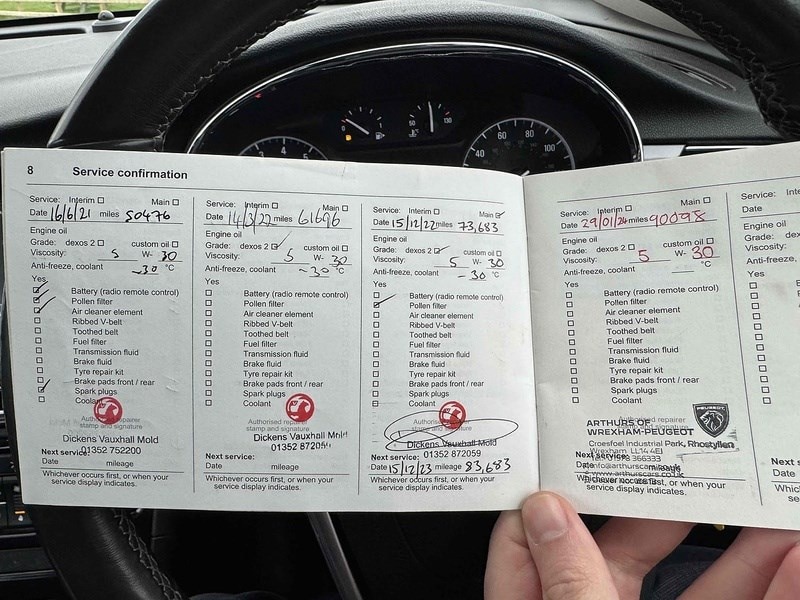 8 Service confirmation
Service: Interim Main
Date 16/6/21 miles 50476
Engine oil
Grade: dexos 2 custom oil
Viscosity: 5 W- 30
Anti-freeze, coolant -30 °C
Yes
Battery (radio remote control)
Pollen filter
Air cleaner element
Ribbed V-belt
Toothed belt
Fuel filter
Transmission fluid
Brake fluid
Tyre repair kit
Brake pads front / rear
Spark plugs
Coolant
Authorised repairer
stamp and signature
Dickens Vauxhall Mold
01352 752200
Next service:
Date mileage
Whichever occurs first, or when your
service display indicates.
Service: Interim Main
Date 14/3/22 miles 61696
Engine oil
Grade: dexos 2 custom oil
Viscosity: 5 W- 30
Anti-freeze, coolant -30 °C
Yes
Battery (radio remote control)
Pollen filter
Air cleaner element
Ribbed V-belt
Toothed belt
Fuel filter
Transmission fluid
Brake fluid
Tyre repair kit
Brake pads front / rear
Spark plugs
Coolant
Authorised repairer
stamp and signature
Dickens Vauxhall Mold
Next service:
Date mileage
Whichever occurs first, or when your
service display indicates.
Service: Interim Main
Date 15/12/22 miles 73,683
Engine oil
Grade: dexos 2 custom oil
Viscosity: 5 W- 30
Anti-freeze, coolant -30 °C
Yes
Battery (radio remote control)
Pollen filter
Air cleaner element
Ribbed V-belt
Toothed belt
Fuel filter
Transmission fluid
Brake fluid
Tyre repair kit
Brake pads front / rear
Spark plugs
Coolant
Authorised repairer
stamp and signature
Dickens Vauxhall Mold
01352 872059
Next service:
Date 15/12/23 mileage 83,683
Whichever occurs first, or when your
service display indicates.
Service: Interim Main
Date 29/01/24 miles 90098
Engine oil
Grade: dexos 2 custom oil
Viscosity: 5 W- 30
Anti-freeze, coolant °C
Yes
Battery (radio remote control)
Pollen filter
Air cleaner element
Ribbed V-belt
Toothed belt
Fuel filter
Transmission fluid
Brake fluid
Tyre repair kit
Brake pads front / rear
Spark plugs
Coolant
Authorised repairer
stamp and signature
PEUGEOT
ARTHURS OF
WREXHAM-PEUGEOT
Croesfoel Industrial Park, Rhostyllen
Wrexham LL14 4EJ
Next service:
Date mileage
Whichever occurs first, or when your
service display indicates.
Service:
Date
Engine oil
Grade:
Viscosity:
Anti-freeze
Yes
Next
Date